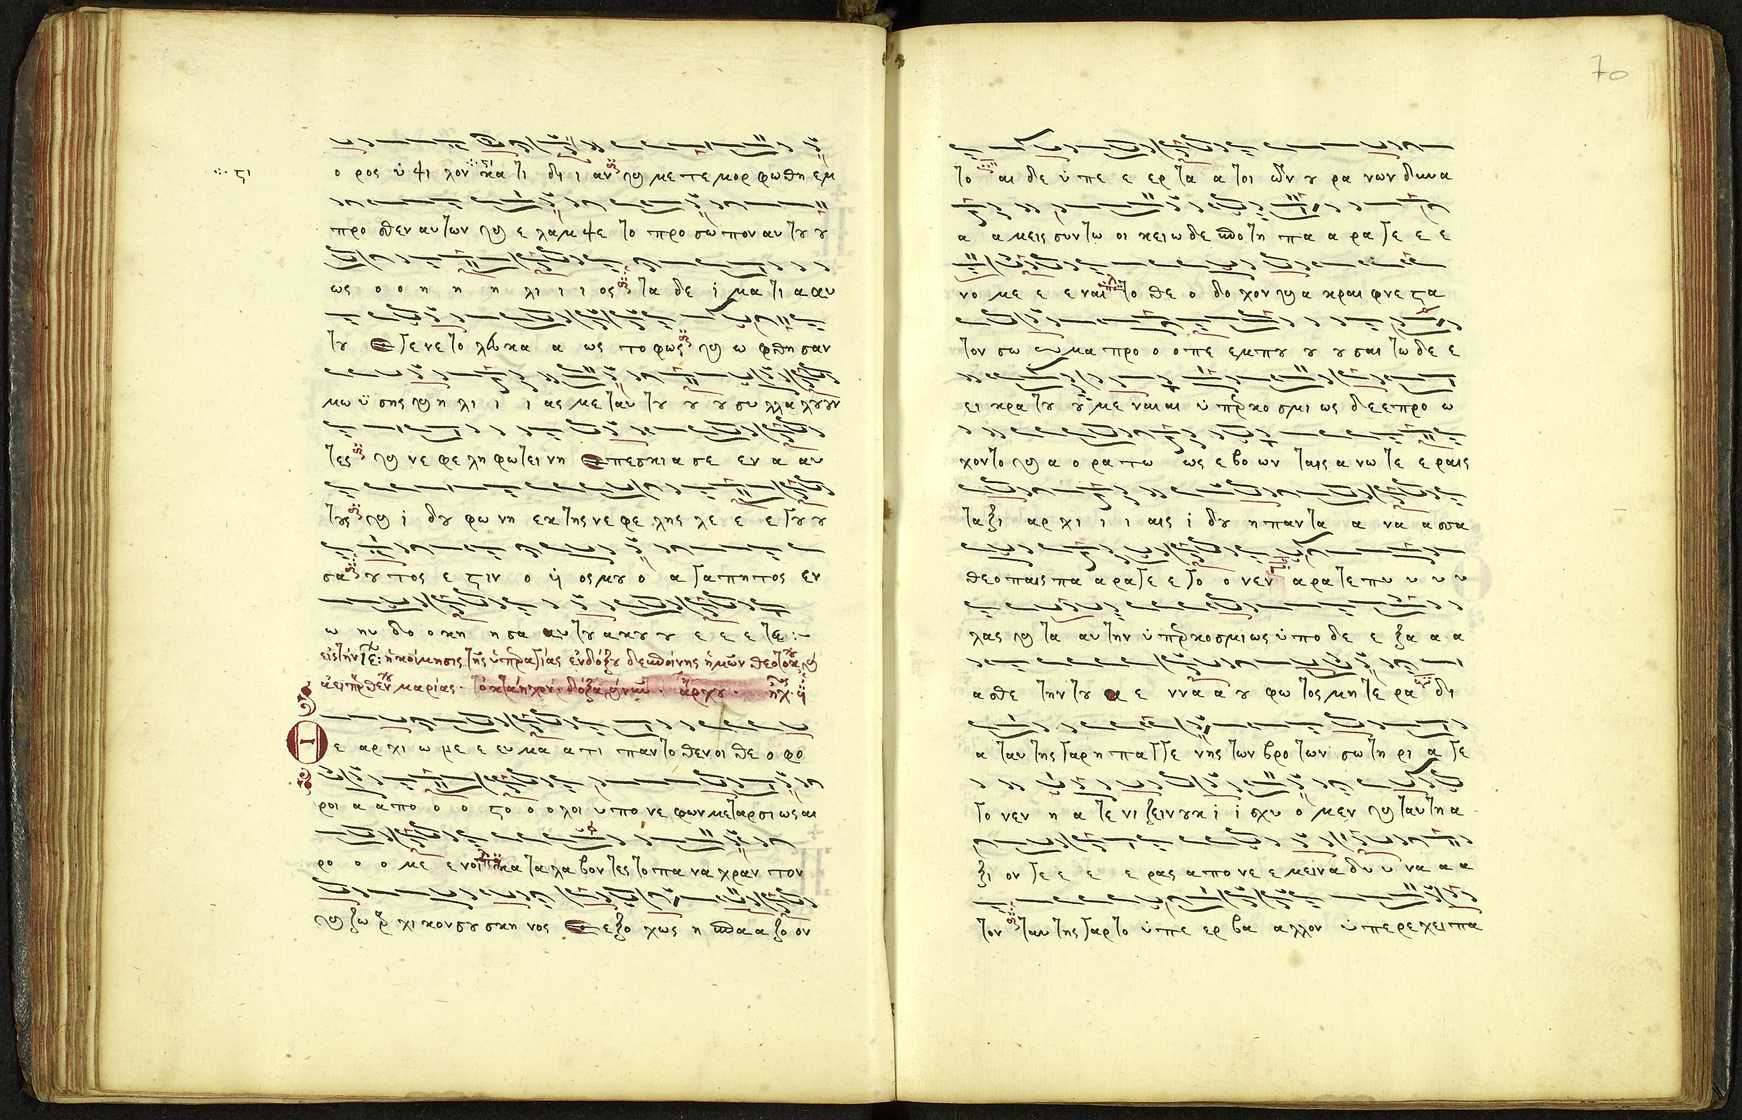 ο ρος ὑ ψι λον κα τι δι ι αν κỳ με τε μορ φω θη εμ
προ σθεν αυ των κỳ ε λαμ ψε το προ σω πον αυ του ου
ως ο ο η η η λι ι ι ος τα δε ι μα τι α αυ
του ε γε νε το λευ κα α ως το φως κỳ ω φθη σαν
μω ϋ σης κỳ η λι ι ι ας με ταυ του ου ου συ λλα λουν
τες κỳ νε φε λη φω τει νη ε πε σκι α σε εν α αυ
τους κỳ ι δου φω νη εκ της νε φε λης λε ε ε γου ου
σα ου τος ε στιν ο ὑι ος μου ο α γα πη τος εν
ω ηυ δο ο κη η σα αυ του α κου ου ε ε ε τε :~
εἰς τὴν ιε: ἡ κοίμησις τῆς ὑπεραγίας ἐνδόξου δεσποίνης ἡμῶν θεοτόκου κỳ
ἀειπαρθένου μαρίας.
ι ε αρ χι ω με ε ευ μα α τι παν το θεν οι θε ο φο
ροι α α πο ο ο στο ο ο λοι υ πο νε φων με ταρ σι ως αι
ρο ο ο με ε νοι κα τα λα βον τες το πα να χραν τον
κỳ ζω αρ χι κον σου σκη νος ε ξο χως η σπα α ζο ον
70
το αι δε ὑ πε ε ερ τα α τοι των ου ρα νων δυ να
α α μεις συν τω οι κει ω δε σπο τη πα α ρα γε ε ε
νο με ε ε ναι το θε ο δο χον κỳ α κραι φνε στα
τον σω ω μα προ ο ο πε εμ που ου ου σαι τω δε ε
ει κρα του ου με ναι αι ὑ περ κο σμι ως δε ε προ ω
χον το κỳ α ο ρα τω ως ε βο ων ταις α νω τε ε ραις
τα ξι αρ χι ι ι αις ι δου η παν τα α να α σσα
θε ο παις πα α ρα γε ε γο ο νεν α ρα τε πυ υ υ υ
λας κỳ τα αυ την ὑ περ κο σμι ως ὑ πο δε ε ξα α α
α σθε την του α ε ννα α ου φω τος μη τε ρα δι
α ταυ της γαρ η πα γγε νης των βρο των σω τη ρι α γε
γο νεν η α τε νι ζειν ουκ ι ι σχυ ο μεν κỳ ταυ τη α
ξι ον γε ε ε ε ρας α πο νε ε μειν α δυ υ να α α
τον ταυ της γαρ το ὑ πε ερ βα α λλον ὑ πε ρε χει πα